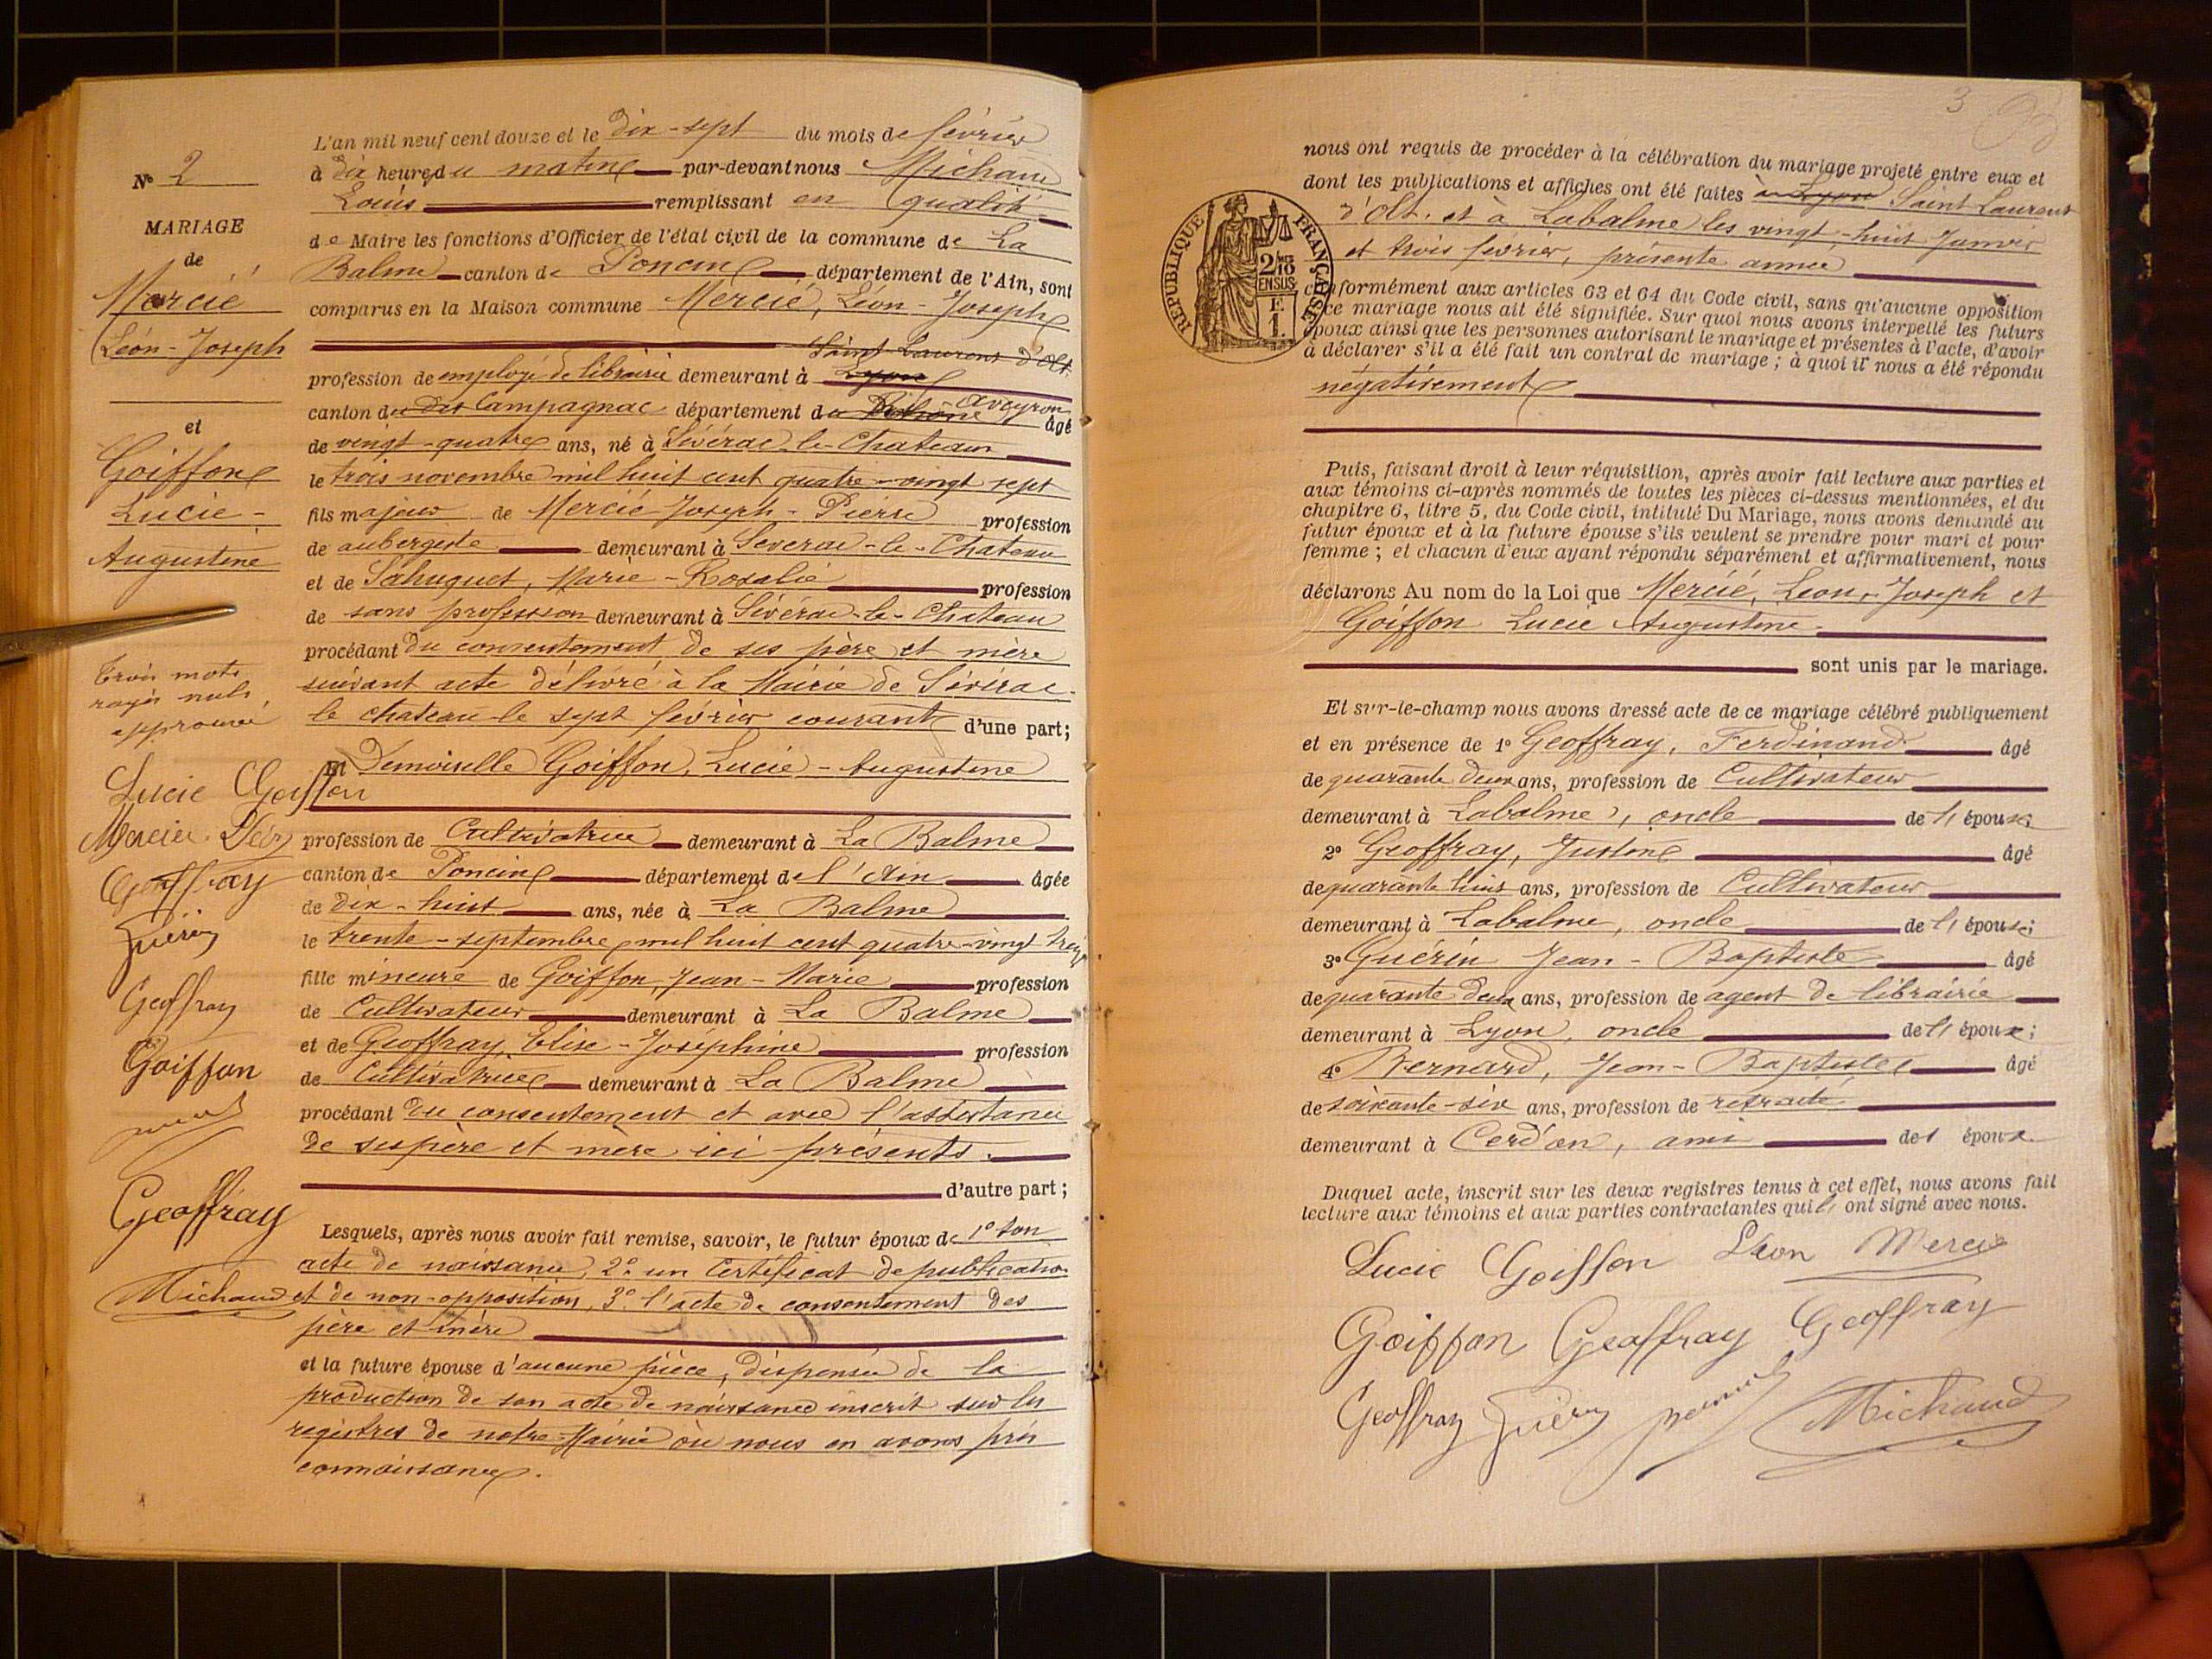 N° 2
MARIAGE
de
Mercié
Léon-Joseph
et
Goiffon
Lucie-
Augustine
Trois mots
rayés nuls
approuvé
Lucie Goiffon
Mercier Léon
Geoffray
Guérin
Geoffray
Goiffon
Geoffray
Michaud
L'an mil neuf cent douze et le dix-sept du mois de février
à dix heures du matin par-devant nous Michaud
Louis remplissant en qualité
de Maire les fonctions d'Officier de l'état civil de la commune de La
Balme canton de Poncin département de l'Ain, sont
comparus en la Maison commune Mercié, Léon-Joseph
Saint Laurent d'Olt
profession de employé de librairie demeurant à Lyon
canton de Campagnac département du Rhône Aveyron âgé
de vingt-quatre ans, né à Sévérac-le-Chateau
le trois novembre mil huit cent quatre-vingt sept
fils majeur de Mercié Joseph-Pierre profession
de aubergiste demeurant à Severac-le-Chateau
et de Sahuguet, Marie-Rosalie profession
de sans profession demeurant à Sévérac-le-Chateau
procédant du consentement de ses père et mère
suivant acte délivré à la Mairie de Sévérac-
le chateau le sept février courant d'une part;
Et Demoiselle Goiffon, Lucie-Augustine
profession de Cultivatrice demeurant à La Balme
canton de Poncin département de l'Ain âgée
de dix-huit ans, née à La Balme
le trente-septembre mil huit cent quatre-vingt treize
fille mineure de Goiffon, Jean-Marie profession
de Cultivateur demeurant à La Balme
et de Geoffray, Elise-Joséphine profession
de Cultivatrice demeurant à La Balme
procédant du consentement et avec l'assistance
de ses père et mère ici présents.
d'autre part;
Lesquels, après nous avoir fait remise, savoir, le futur époux de 1° son
acte de naissance, 2° un Certificat de publication
et de non-opposition, 3° l'acte de consentement des
père et mère
et la future épouse d'aucune pièce, dispensée de la
production de son acte de naissance inscrit sur les
registres de notre Mairie où nous en avons pris
connaissance.
3
nous ont requis de procéder à la célébration du mariage projeté entre eux et
dont les publications et affiches ont été faites à Lyon Saint Laurent
d'Olt. et à Labalme les vingt-huit Janvier
et trois février, présente année
REPUBLIQUE FRANÇAISE
2/10
EN SUS
F.
1.
conformément aux articles 63 et 64 du Code civil, sans qu'aucune opposition
à ce mariage nous ait été signifiée. Sur quoi nous avons interpellé les futurs
époux ainsi que les personnes autorisant le mariage et présentes à l'acte, d'avoir
à déclarer s'il a été fait un contrat de mariage; à quoi il nous a été répondu
négativement
Puis, faisant droit à leur réquisition, après avoir fait lecture aux parties et
aux témoins ci-après nommés de toutes les pièces ci-dessus mentionnées, et du
chapitre 6, titre 5, du Code civil, intitulé Du Mariage, nous avons demandé au
futur époux et à la future épouse s'ils veulent se prendre pour mari et pour
femme; et chacun d'eux ayant répondu séparément et affirmativement, nous
déclarons Au nom de la Loi que Mercié, Léon-Joseph et
Goiffon Lucie Augustine
sont unis par le mariage.
Et sur-le-champ nous avons dressé acte de ce mariage célébré publiquement
et en présence de 1° Geoffray, Ferdinand âgé
de quarante deux ans, profession de Cultivateur
demeurant à Labalme, oncle de l'épouse;
2° Geoffray, Justin âgé
de quarante trois ans, profession de Cultivateur
demeurant à Labalme, oncle de l'épouse;
3° Guérin Jean-Baptiste âgé
de quarante deux ans, profession de agent de librairie
demeurant à Lyon, oncle de l'époux;
4° Bernard, Jean-Baptiste âgé
de soixante-six ans, profession de retraité
demeurant à Cerdon, ami de l'époux.
Duquel acte, inscrit sur les deux registres tenus à cet effet, nous avons fait
lecture aux témoins et aux parties contractantes qui ont signé avec nous.
Lucie Goiffon Léon Mercié
Goiffon Geoffray Geoffray
Geoffray Guérin Bernard Michaud